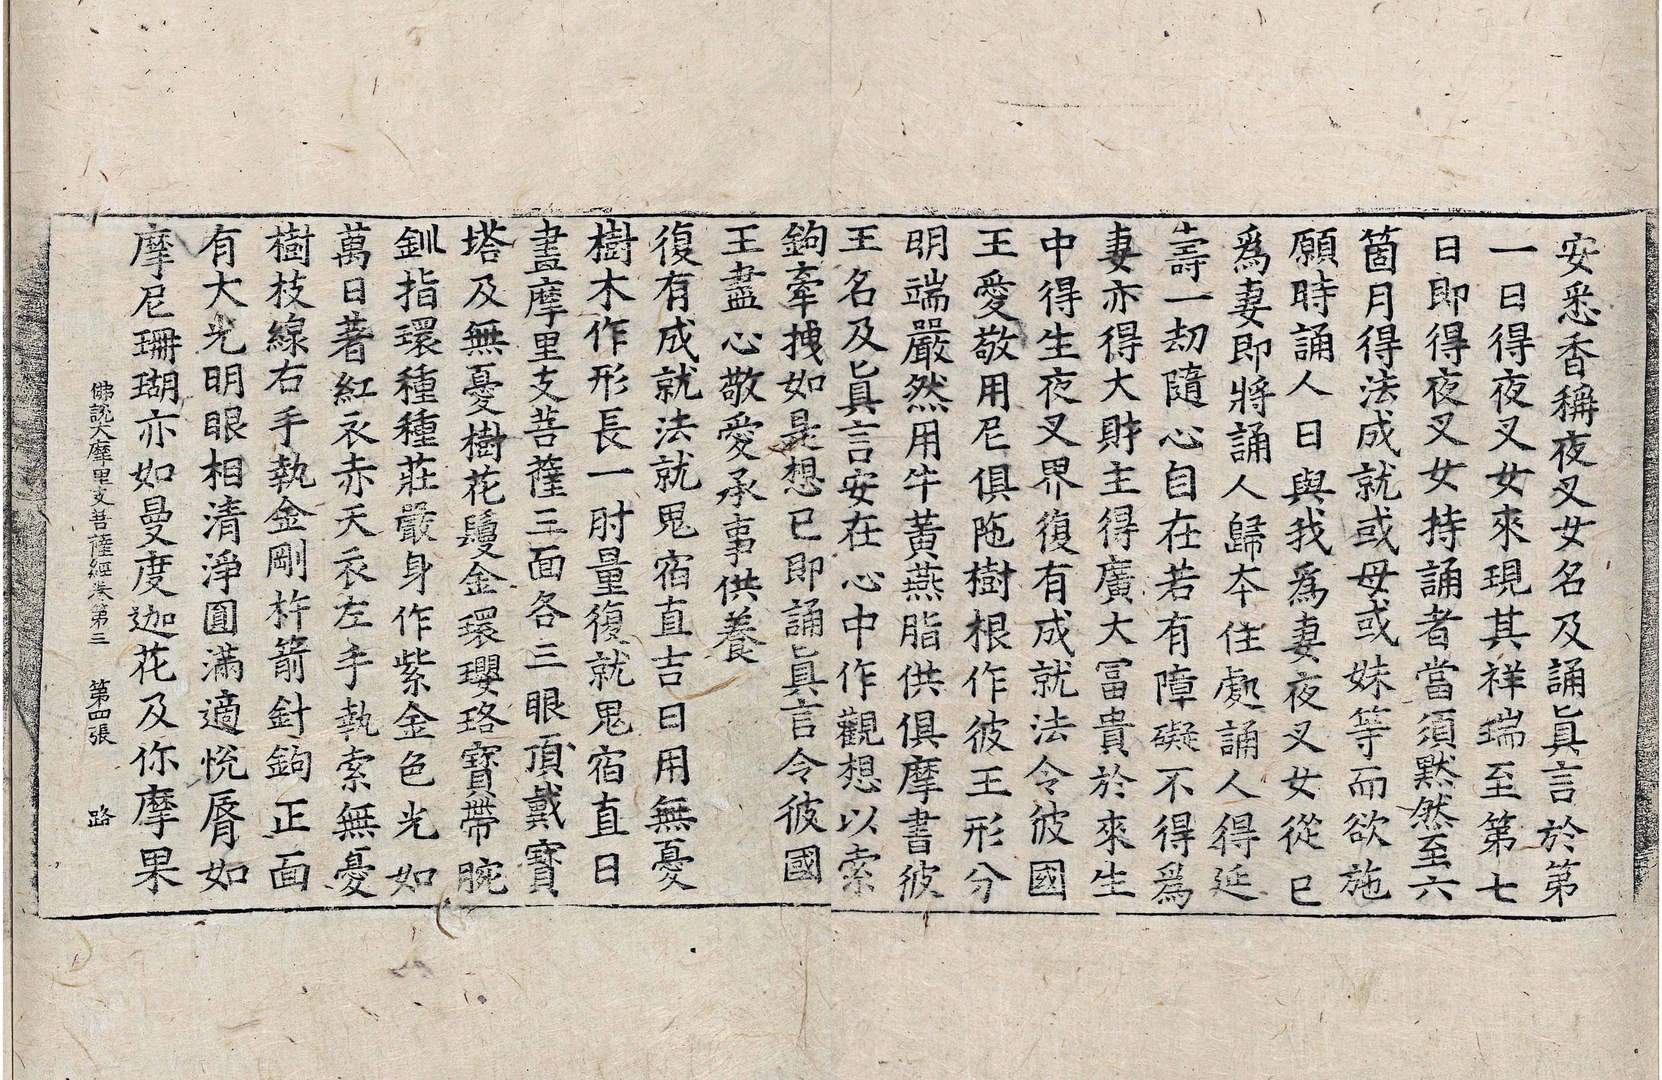 安悉香稱夜叉女名及誦眞言於第
一日得夜叉女來現其祥瑞至第七
日即得夜叉女持誦者當須黙然至六
箇月得法成就或母或妹等而欲施
願時誦人日與我爲妻夜叉女從已
爲妻即將誦人歸本住處誦人得延
壽一劫隨心自在若有障礙不得爲
妻亦得大財主得廣大冨貴於來生
中得生夜叉界復有成就法令彼國
王愛敬用尼俱陁樹根作彼王形分
明端嚴然用牛黃燕脂供俱摩書彼
王名及眞言安在心中作觀想以索
鉤牽拽如是想已即誦眞言令彼國
王盡心敬愛承事供養
復有成就法就鬼宿直吉日用無憂
樹木作形長一肘量復就鬼宿直日
畫摩里支菩薩三面各三眼頂戴寶
塔及無憂樹花鬘金環瓔珞寶帶腕
釧指環種種莊嚴身作紫金色光如
萬日著紅衣赤天衣左手執索無憂
樹枝線右手執金剛杵箭針鉤正面
有大光明眼相清淨圓滿適悅脣如
摩尼珊瑚亦如曼度迦花及你摩果
佛說大摩里支菩薩經卷第三 第四張 路